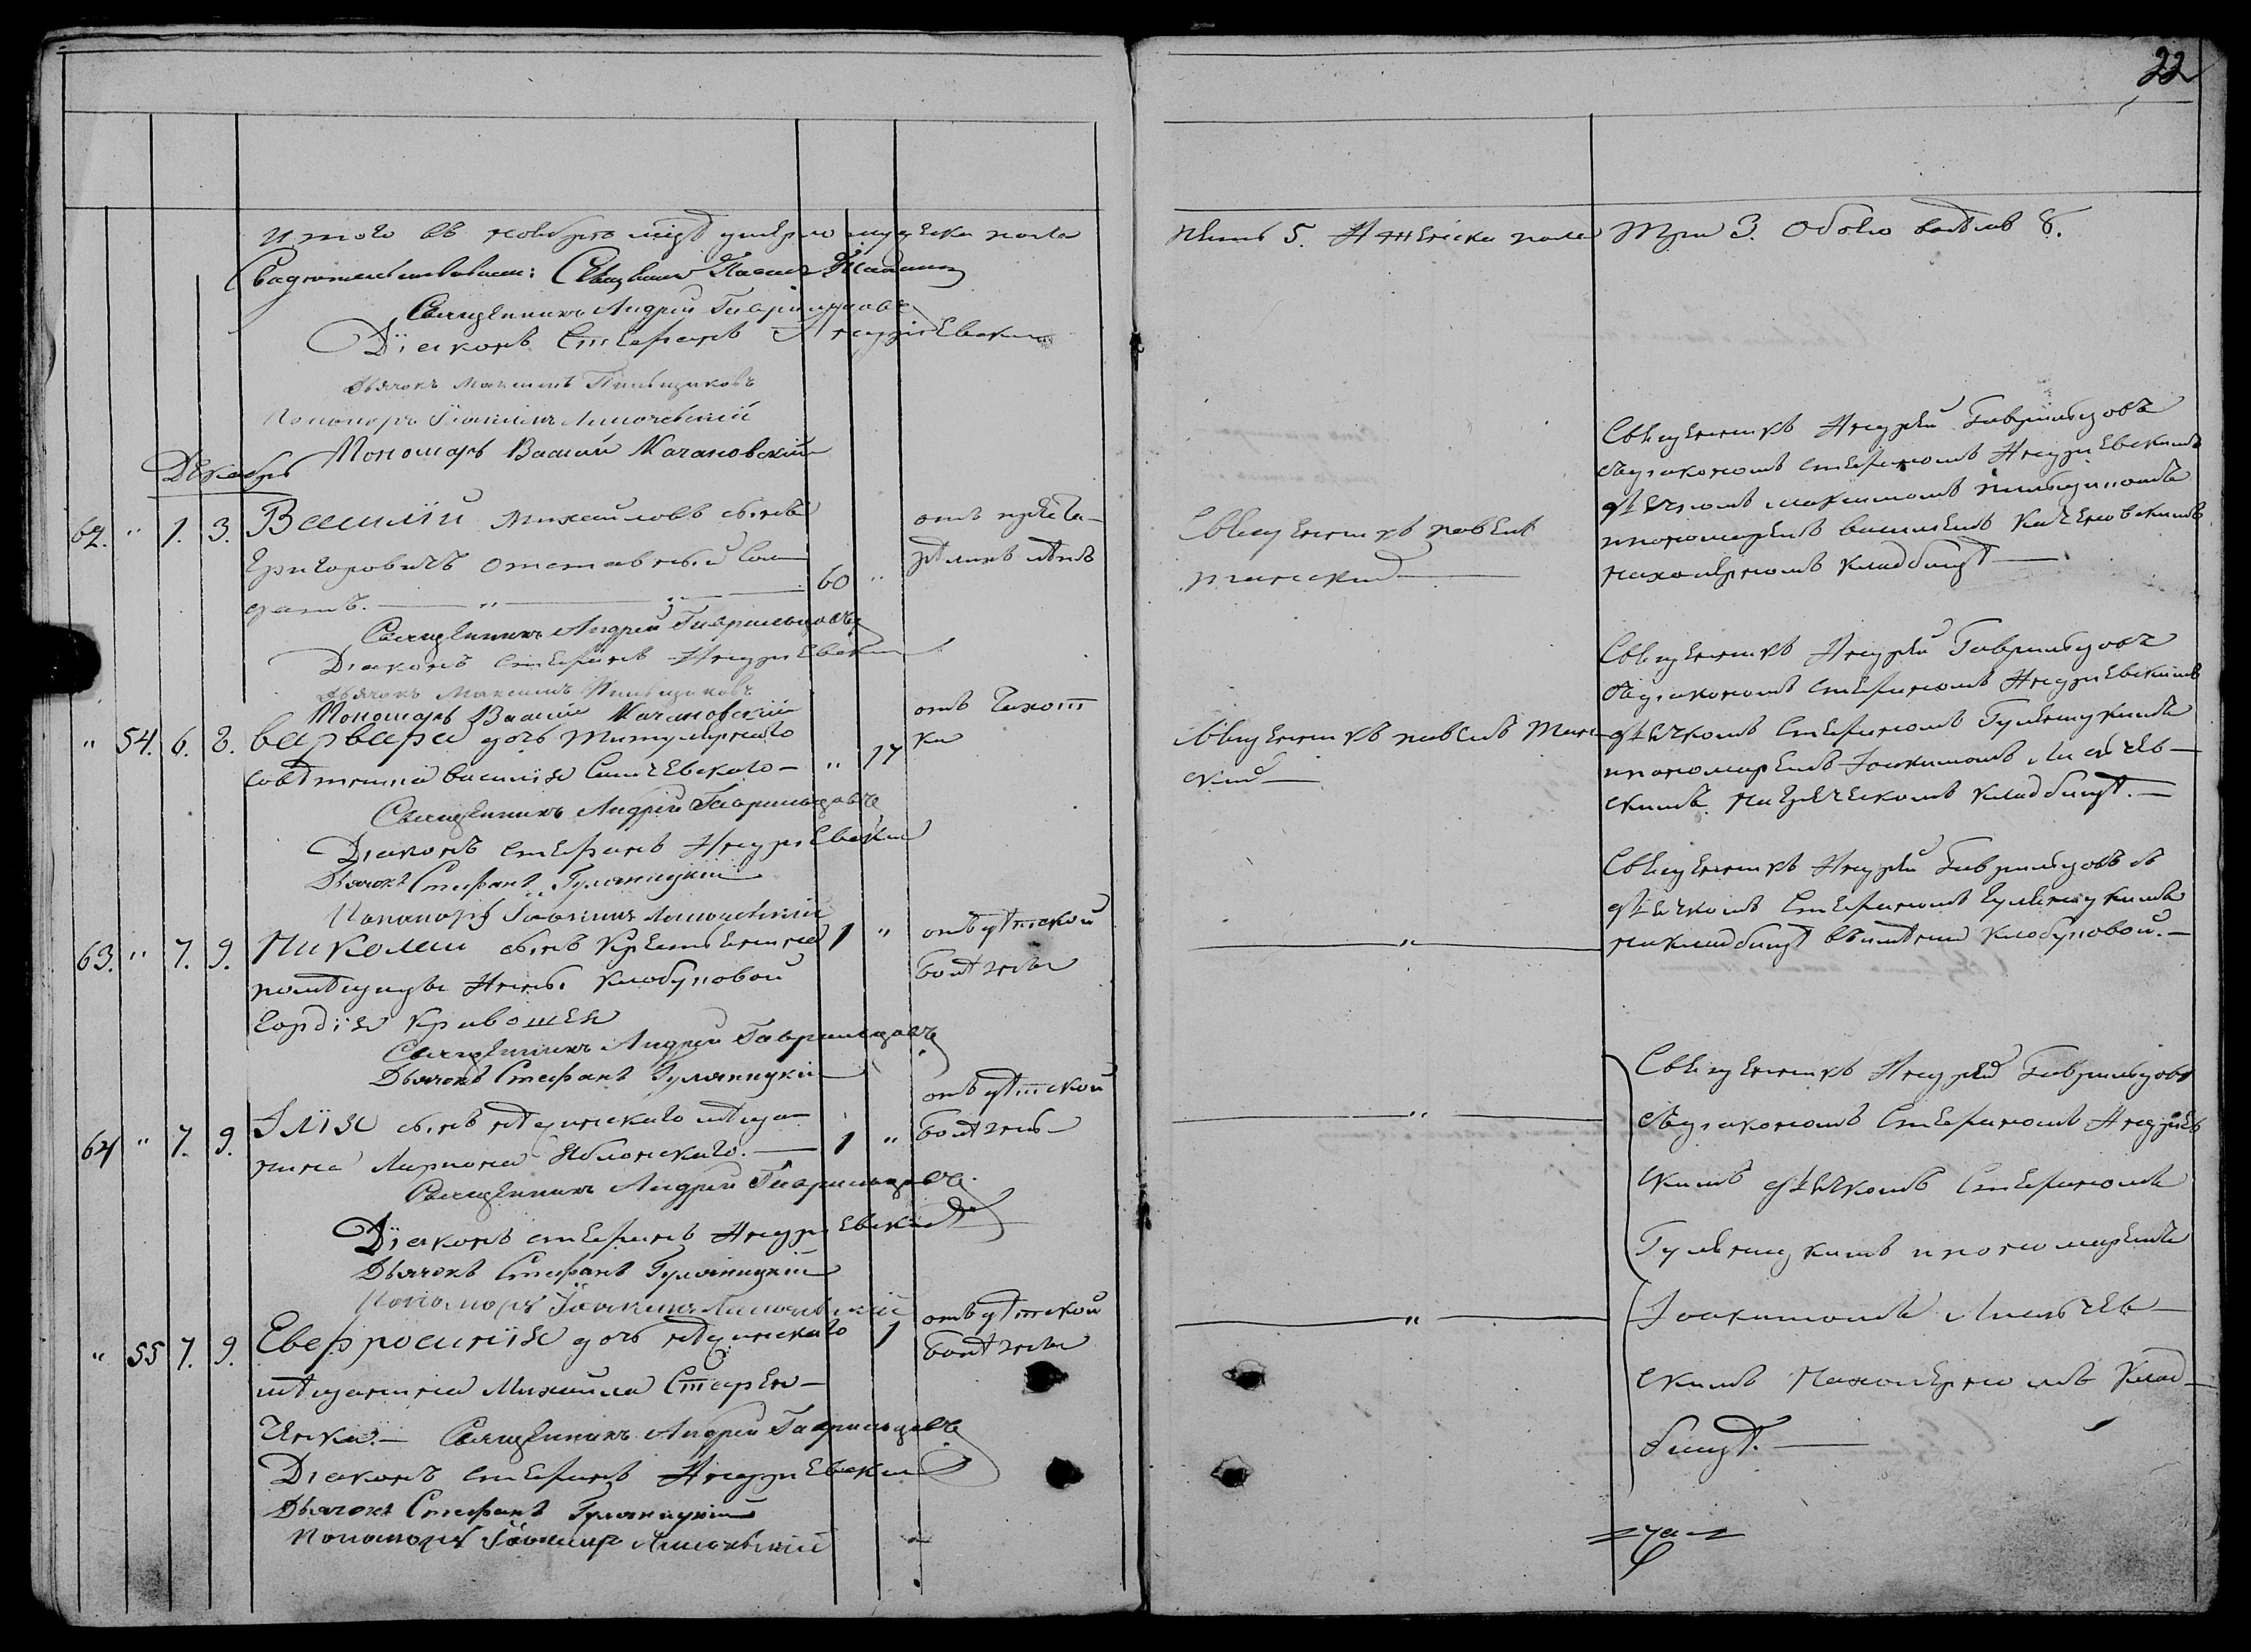 22
Итого въ ноябрѣ м҃цѣ умерло мужеска пола
пять 5. Женска пола
три 3. обоего вообще 8.
Свидетельствовали: Священникъ Павелъ
Священникъ Андрей Гаврильцовъ
Дїаконъ Стефанъ Андрїевскій
Дьячокъ Максимъ Пильщиковъ
Пономарь Іоакимъ Лисичевскій
Пономарь Василій Качановскій
Декабрь
62. " 1. 3. Василїй Михайловъ сынъ
Григоровичъ отставный сол-
датъ. 60 "
отъ преста-
рѣлихъ лѣтъ
Священникъ Павелъ
Танскій
Священникъ Андрей Гаврильцовъ
съ дїакономъ Стефаномъ Андрїевскимъ
дьячкомъ Максимомъ Пильщиковымъ
и пономаремъ Василіемъ Качановскимъ
на холерномъ кладбищѣ
Священникъ Андрей Гаврильцовъ
Дїаконъ Стефанъ Андрїевскій
Дьячокъ Максимъ Пильщиковъ
Пономарь Василій Качановскій
" 54. 6. 8. Варвара дочь титулярнаго
совѣтника Василїя " 17
отъ чахот
ки
Священникъ Павелъ Тан-
скій
Священникъ Андрей Гаврильцовъ
съ дїакономъ Стефаномъ Андрїевскимъ
дьячкомъ Стефаномъ Гуляницкимъ
и пономаремъ Іоакимомъ Лисичев-
скимъ на греческомъ кладбищѣ.
Священникъ Андрей Гаврильцовъ
Дїаконъ Стефанъ Андрїевскій
Дьячокъ Стефанъ Гуляницкій
Пономарь Іоакимъ Лисичевскій
63. " 7. 9. Николай сынъ крестьянина 1 "
помѣщицы Анны Клобуковой
Гордїя Кривошея
отъ дѣтской
болѣзни
"
Священникъ Андрей Гаврильцовъ съ
дьячкомъ Стефаномъ Гуляницкимъ
на кладбищѣ въ имѣнїи Клобуковой.
Священникъ Андрей Гаврильцовъ
Дьячокъ Стефанъ Гуляницкій
64 " 7. 9. Ілїя сынъ нѣжинскаго мѣща-
нина Ларіона Яблонскаго. 1 "
отъ дѣтской
болѣзни
"
Священникъ Андрей Гаврильцовъ
съ дїакономъ Стефаномъ Андрїев
скимъ дьячкомъ Стефаномъ
Гуляницкимъ и пономаремъ
Іоакимомъ Лисичев-
скимъ на холерномъ клад-
бищѣ.
Священникъ Андрей Гаврильцовъ
Дїаконъ Стефанъ Андрїевскій
Дьячокъ Стефанъ Гуляницкій
Пономарь Іоакимъ Лисичевскій
" 55 7. 9. Евфросинїя дочь нѣжинскаго 1
мѣщанина Михаила Старен-
ченка.
отъ дѣтской
болѣзни
"
Священникъ Андрей Гаврильцовъ
Дїаконъ Стефанъ Андрїевскій
Дьячокъ Стефанъ Гуляницкій
Пономарь Іоакимъ Лисичевскій